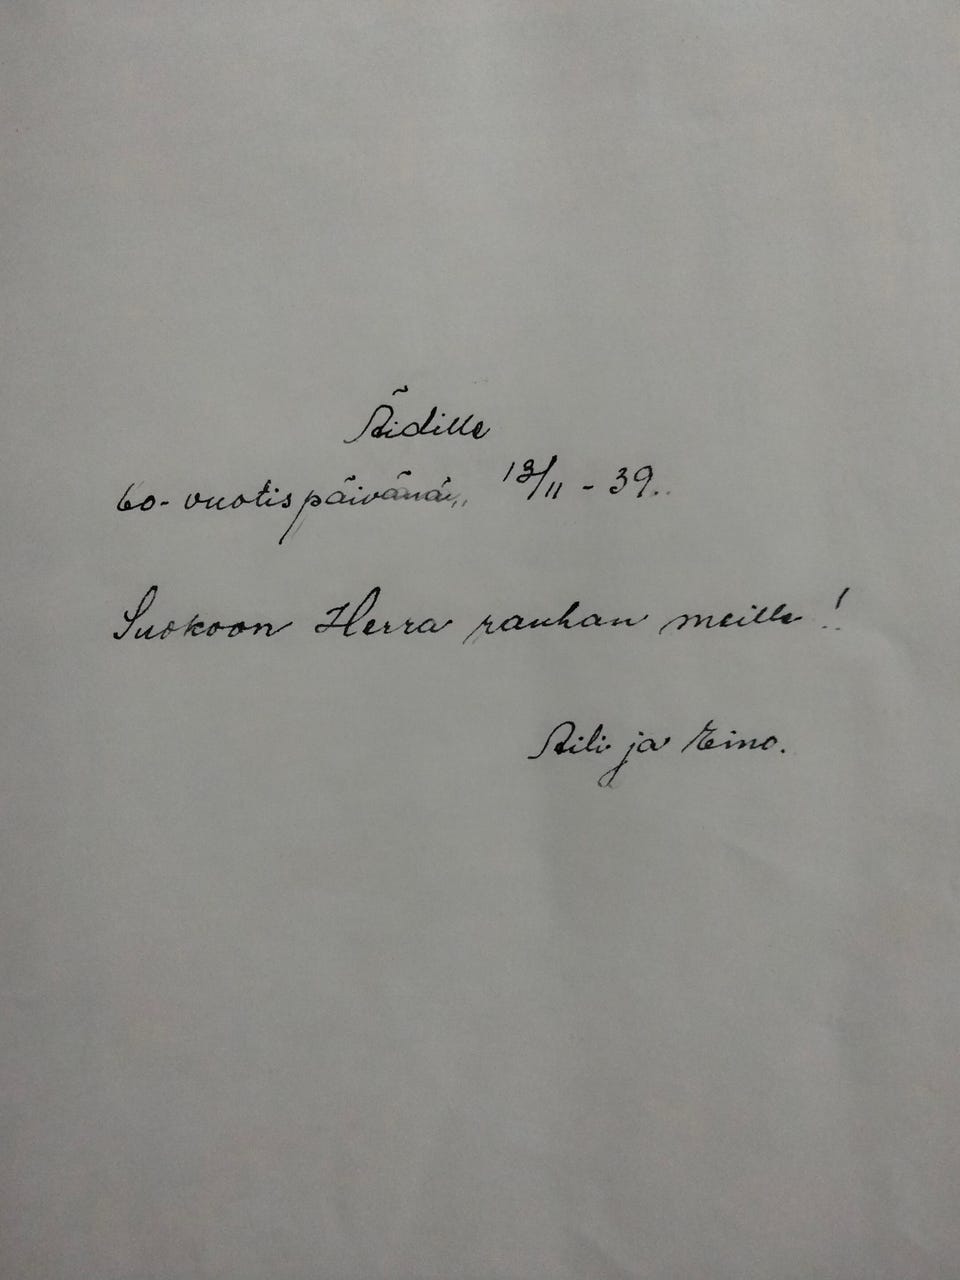 Äidille
60-vuotispäivänä,, 13/11 - 39..
Suokoon Herra rauhan meille!
Aili ja Eino.